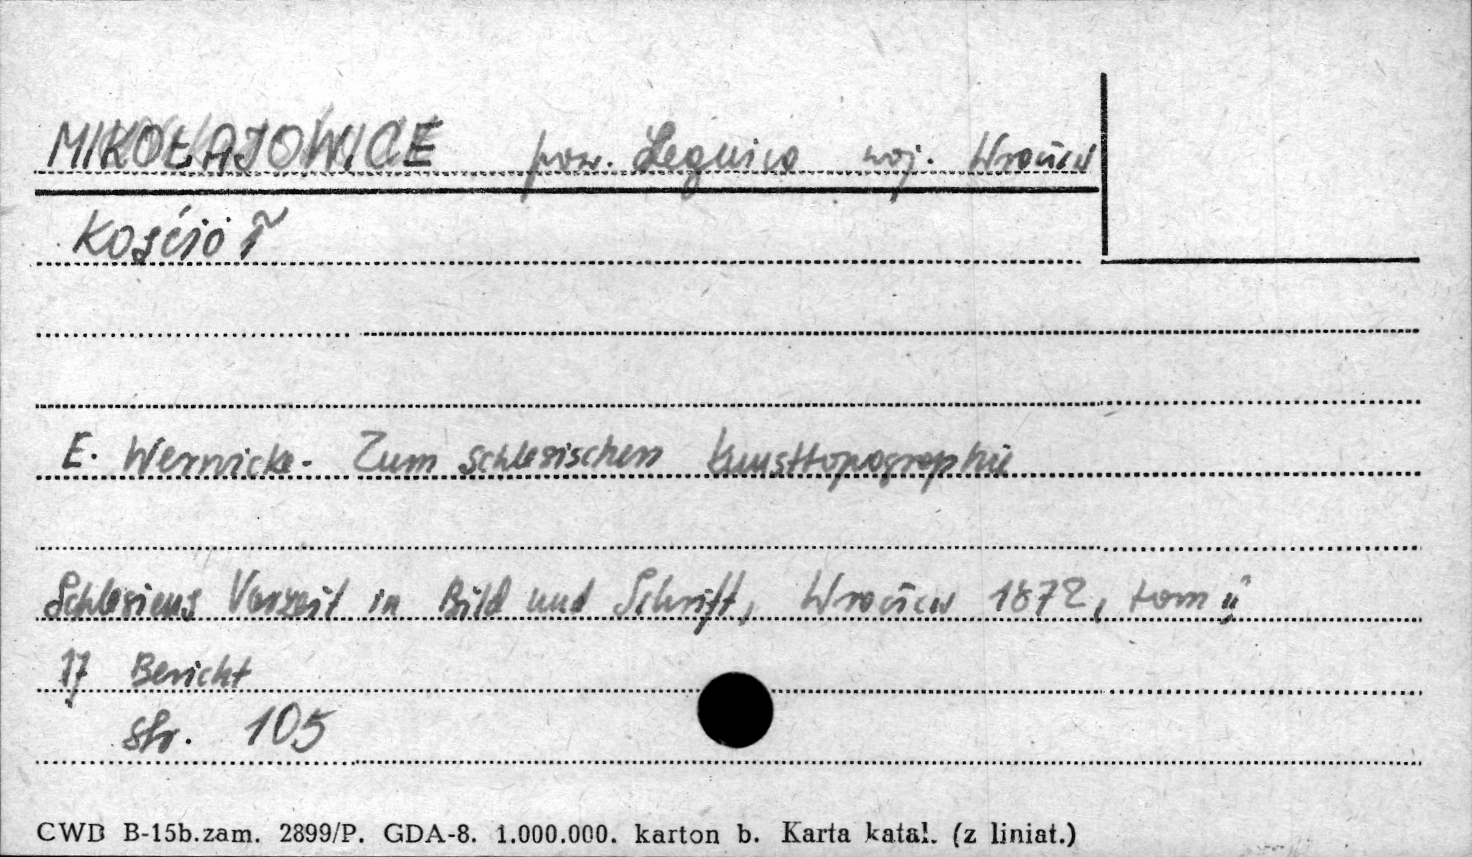 MIKOŁAJOWICE pow. Legnica woj. Wrocław
Kościół
E. Wernicke - Zum schlesischen Kunsttopographie
Schlesiens Vorzeit in Bild und Schrift, Wrocław 1872, tom ii
17 Bericht
str. 105
CWD B-15b.zam. 2899/P. GDA-8. 1.000.000. karton b. Karta katal. (z liniat.)